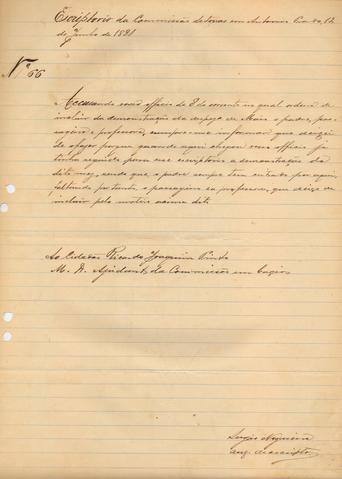 Escriptorio da Commissão de terras em Antonio Prado, 12
de Junho de 1891
Nº 66
Accusando vosso officio de 8 do corrente no qual ordena de
incluir da demonstração da despeza de Maio o padre, pas-
sageiro e professora, cumpre-me informar que deixei
de o fazer porque quando aqui chegou vosso officio já
tinha seguido para esse escriptorio a demonstração do
dito mez, sendo que, o padre sempre tem entrado por aqui,
faltando portanto o passageiro e a professora, que deixei de
incluir pelo motivo acima dito
Ao Cidadão Ricardo Joaquim Pinto
M. D. Ajudante da Commissão em Caxias
Sergio Nogueira